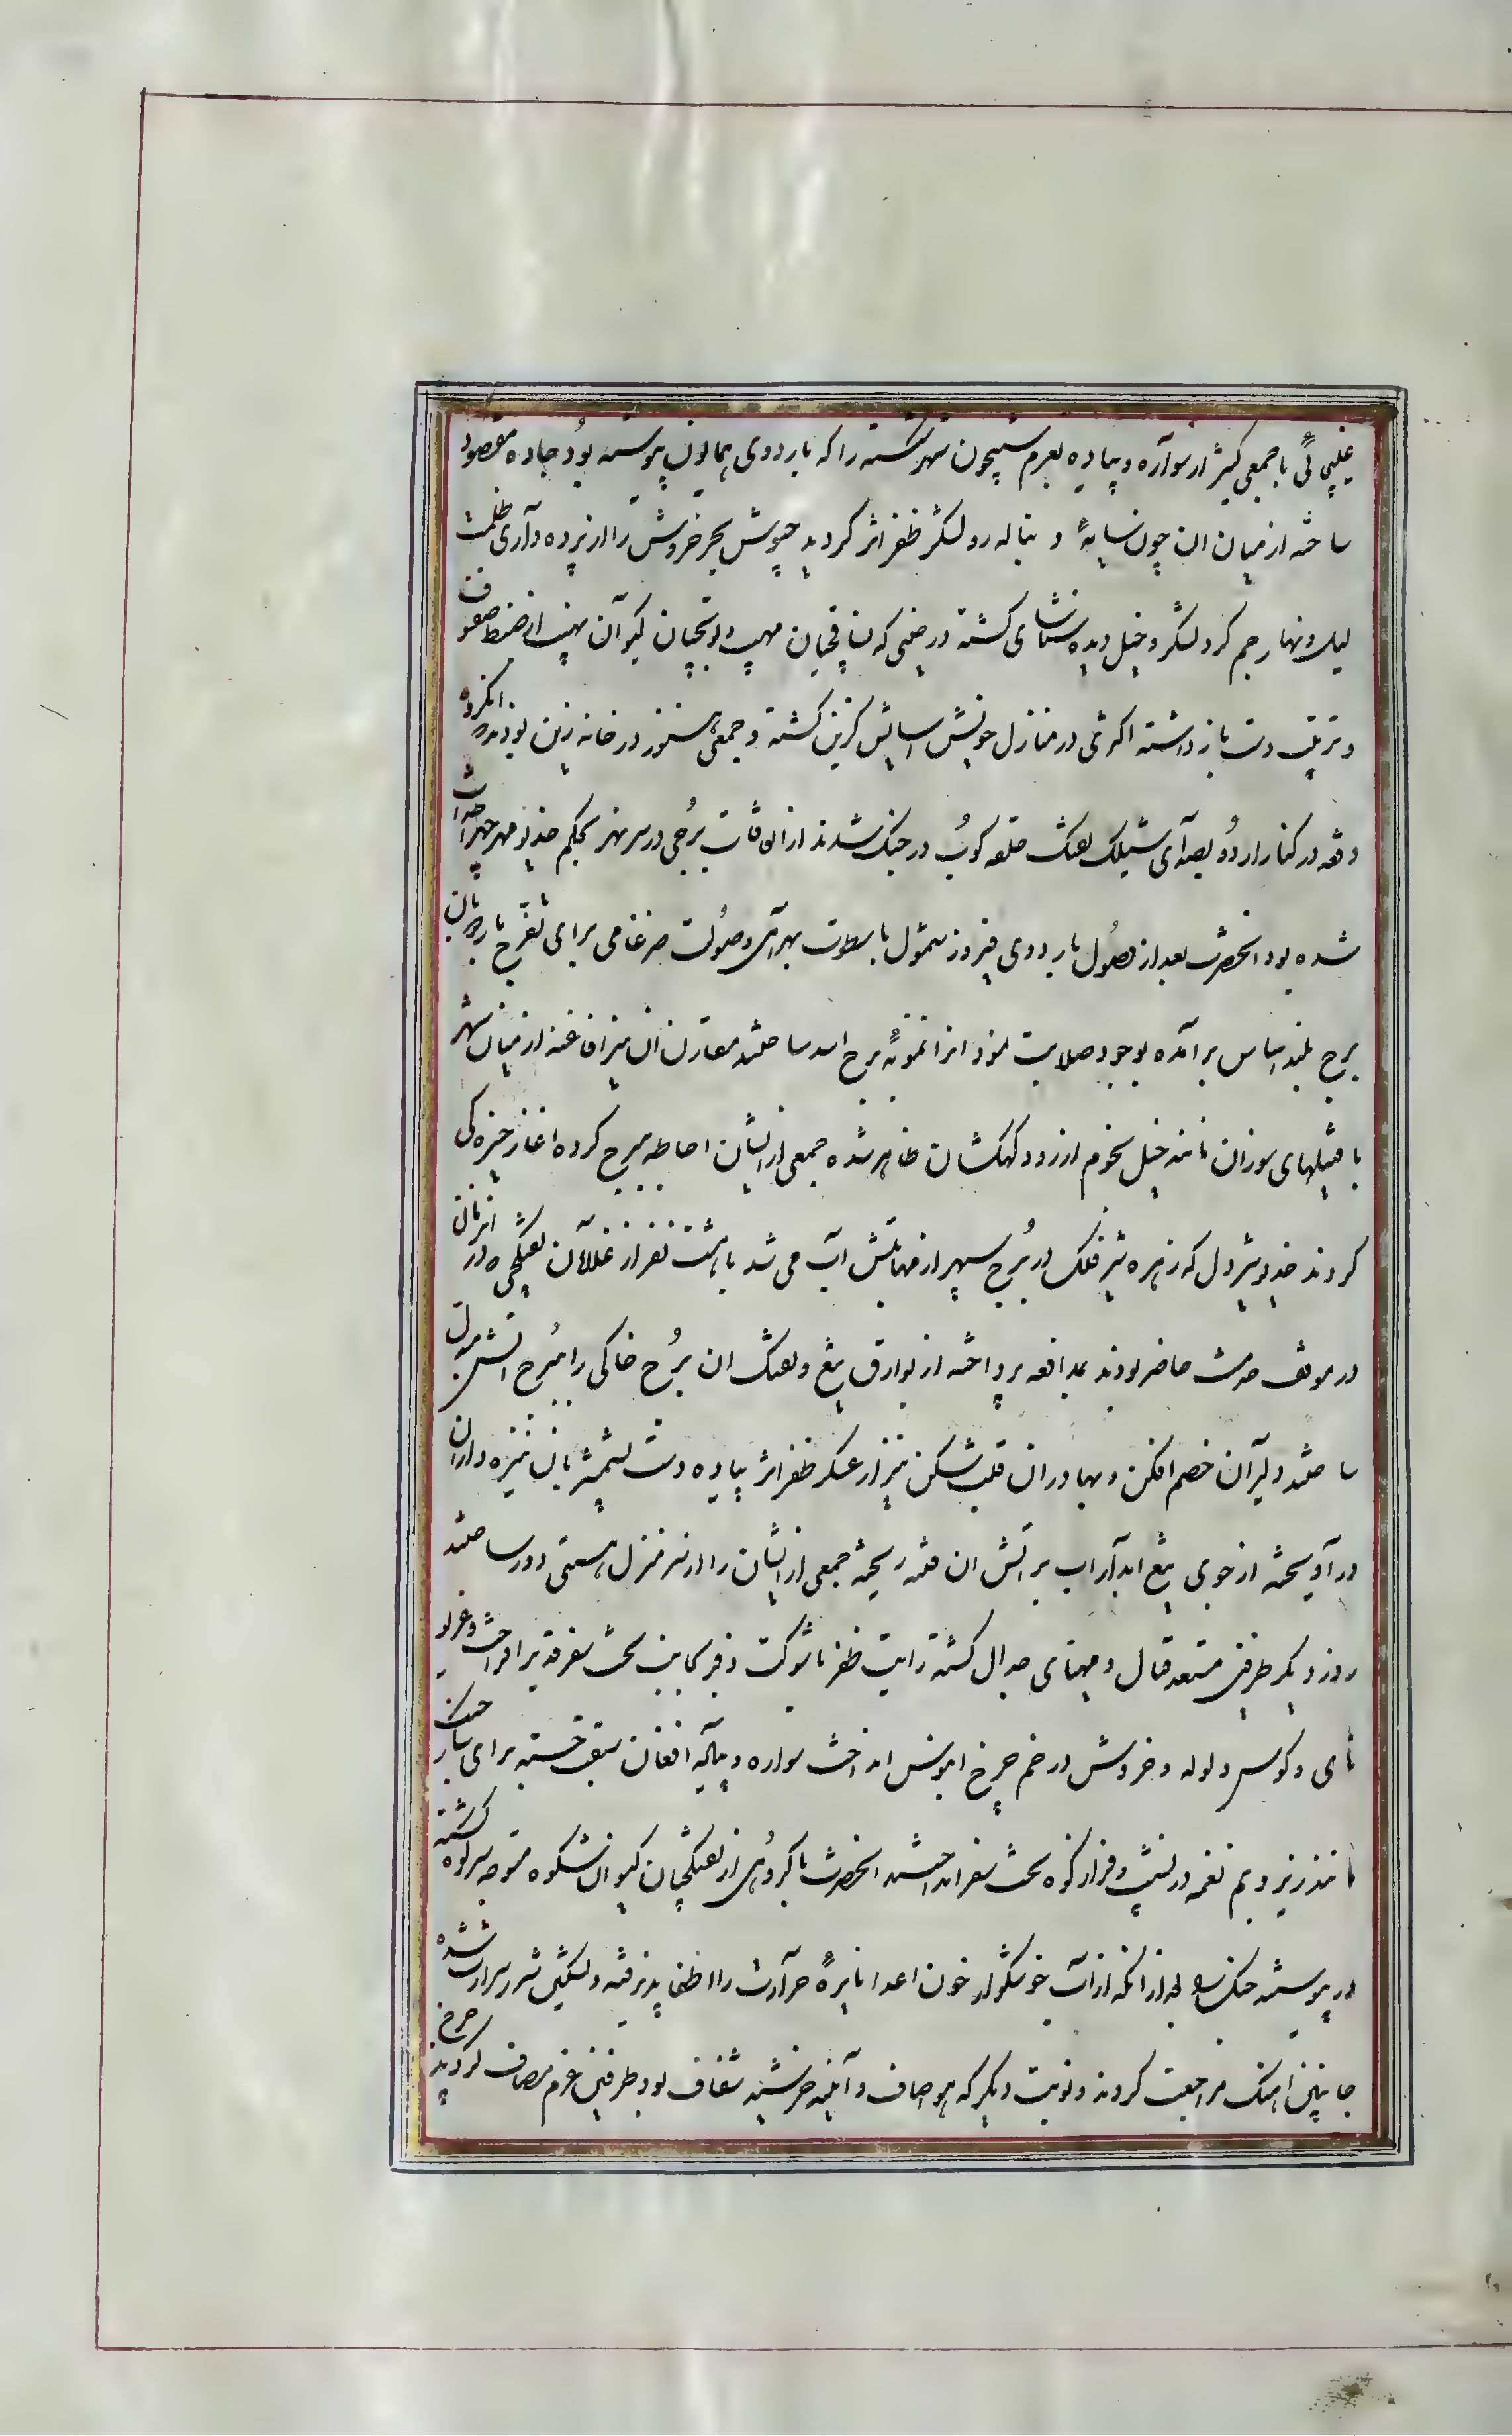 غلیجائی با جمعی کثیر از سواره و پیاده بعزم شبیخون نهر شکسته را که باردوی همایون پیوسته بود جاده مقصود
ساخته از میان آن چون سایهٔ دنباله رو لشکر ظفر اثر کردید جیوش بحر خروش را از پرده داری ظلمت
لیل و نهار جم کرد لشکر و خیل دیده شناسای کشته در حینی که نساقچیان مهیب و یورتچیان کیوان نهیب از ضبط صفوف
و ترتیب دست باز داشته اکثری در منازل خویش آسایش کزین کشته و جمعی هنوز در خانه زین بودند انکروه
دفعه در کنار اردو بصدای شیلیک تفنک حلقه کوب در جنک شدند از اتفاقات برجی در سر نهر بحکم خدیو مهر چهر احداث
شده بود آنحضرت بعد از وصول باردوی فیروز شمول با سطوت بهرامی و صولت ضرغامی برای تفرج بار بر آن
برج بلند اساس برآمده بوجود صلابت نمود آنرا نمونهٔ برج اسد ساختند مقارن آن نیز افاغنه از میان نهر
با فتیلهای سوزان مانند خیل نجوم از رود کهکشان ظاهر شده جمعی از ایشان احاطه برج کرده آغاز خیره کی
کردند خدیو شیر دل که زهره شیر فلک در برج سپهر از مهابتش آب می شد با هشت نفر از غلامان تفنکچی که در آنزمان
در موقف خدمت حاضر بودند بمدافعه پرداخته از بوارق تیغ و تفنک آن برج خاکی را برج آتش
ساختند دلیران خصم افکن و بهادران قلب شکن نیز از عسکر ظفر اثر پیاده دست بشمشیر بآن نیزه داران
در آویخته از جوی تیغ آبدار آب بر آتش آن فتنه ریخته جمعی از ایشان را از سر منزل هستی دور ساختند
روز دیکر طرفین مستعد قتال و مهیای جدال کشته رایت ظفر با شوکت و فر بجانب سمت سفر قد برافراخت و غریو
نای و کوس ولوله و خروش در خم چرخ آبنوس انداخت سواره و پیاده افغان سبقت جسته برای ساز جنک
مانند زیر و بم نغمه در نشیب و فراز کوه سمت سفر انداختند آنحضرت با کروهی از تفنکچیان کیوان شکوه متوجه سر کوه کشته
در پیوسته جنک بعد از آنکه از آب خوشکوار خون اعدا نایرهٔ حرارت را اطفا پذیرفته و تسکین شرر شرارت شده
جانبین آهنک مراجعت کردند و نوبت دیکر که هوا صاف و آینه خورشید شفاف بود طرفین عزم مصاف کردیدند چرخ